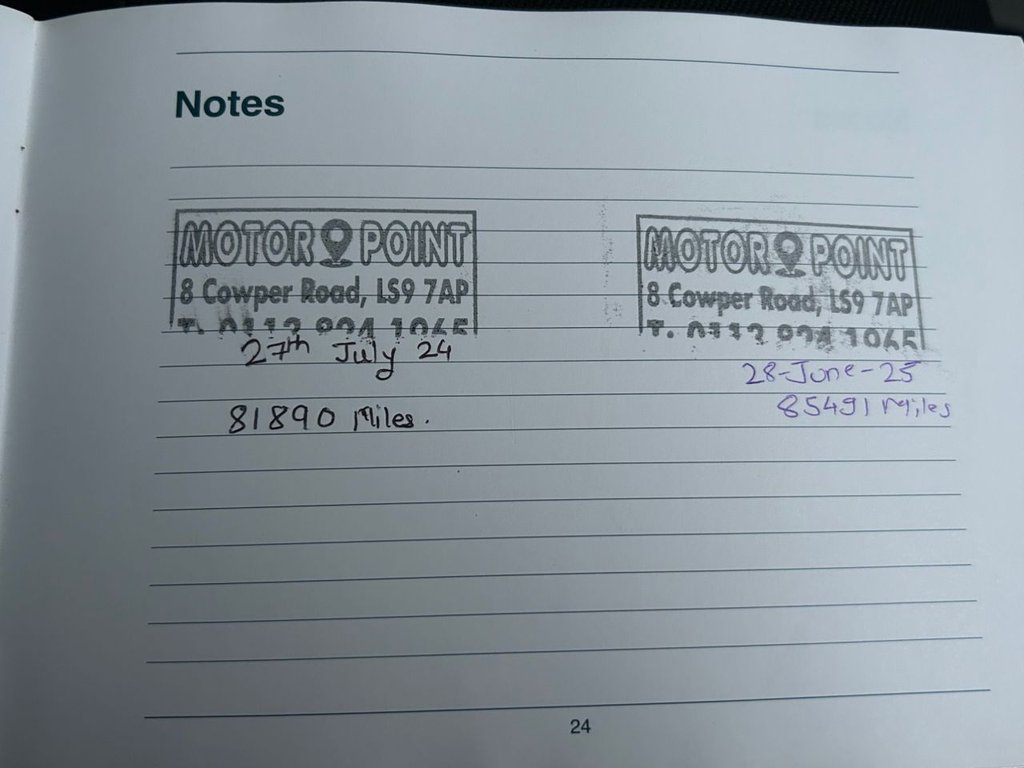 Notes
MOTOR POINT
8 Cowper Road, LS9 7AP
27th July 24
81890 Miles.
MOTOR POINT
8 Cowper Road, LS9 7AP
28-June-25
85491 Miles
24